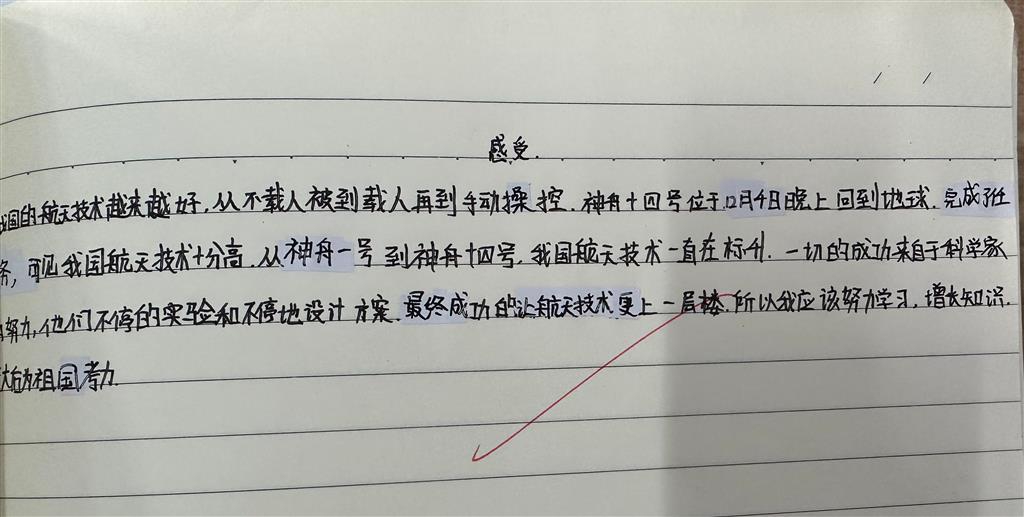 感受.
我国的航天技术越来越好,从不载人被到载人再到手动操控.神舟十四号位于12月4日晚上回到地球.完成了任
务,可见我国航天技术十分高.从神舟一号到神舟十四号,我国航天技术一直在标升.一切的成功来自于科学家
努力,他们不停的实验和不停地设计方案.最终成功的让航天技术更上一层楼.所以我应该努力学习,增长知识.
为祖国